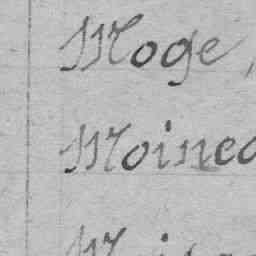 Moge,
Moinea